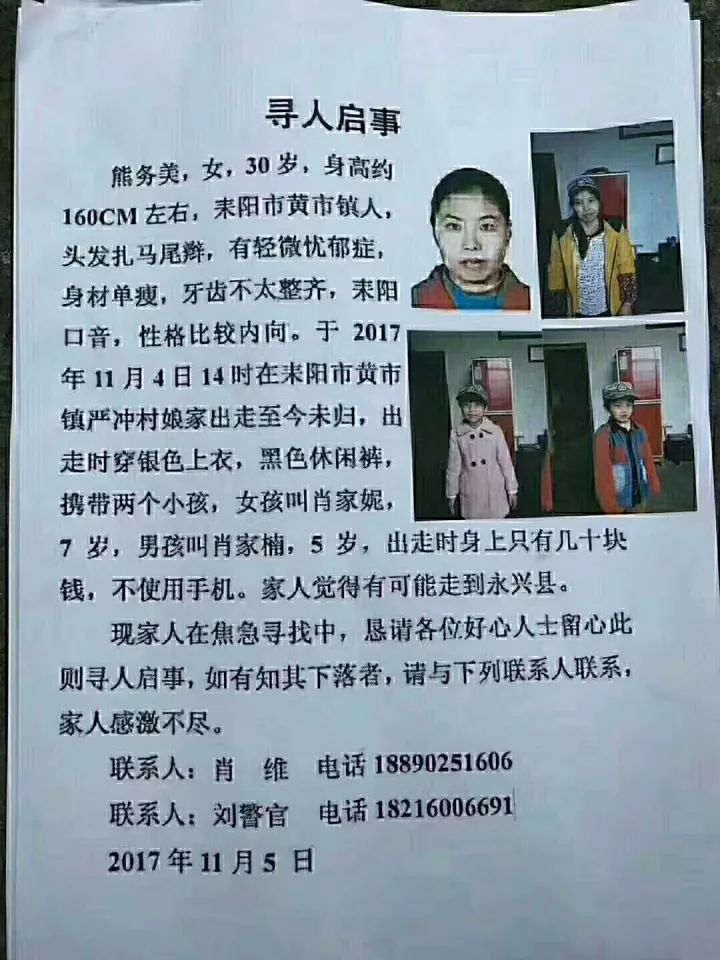 寻人启事
熊务美，女，30岁，身高约
160CM左右，耒阳市黄市镇人，
头发扎马尾辫，有轻微忧郁症，
身材单瘦，牙齿不太整齐，耒阳
口音，性格比较内向。于 2017
年 11 月 4 日 14 时在耒阳市黄市
镇严冲村娘家出走至今未归，出
走时穿银色上衣，黑色休闲裤，
携带两个小孩，女孩叫肖家妮，
7 岁，男孩叫肖家楠，5 岁，出走时身上只有几十块
钱，不使用手机。家人觉得有可能走到永兴县。
现家人在焦急寻找中，恳请各位好心人士留心此
则寻人启事，如有知其下落者，请与下列联系人联系，
家人感激不尽。
联系人：肖 维 电话 18890251606
联系人：刘警官 电话 18216006691
2017 年 11 月 5 日